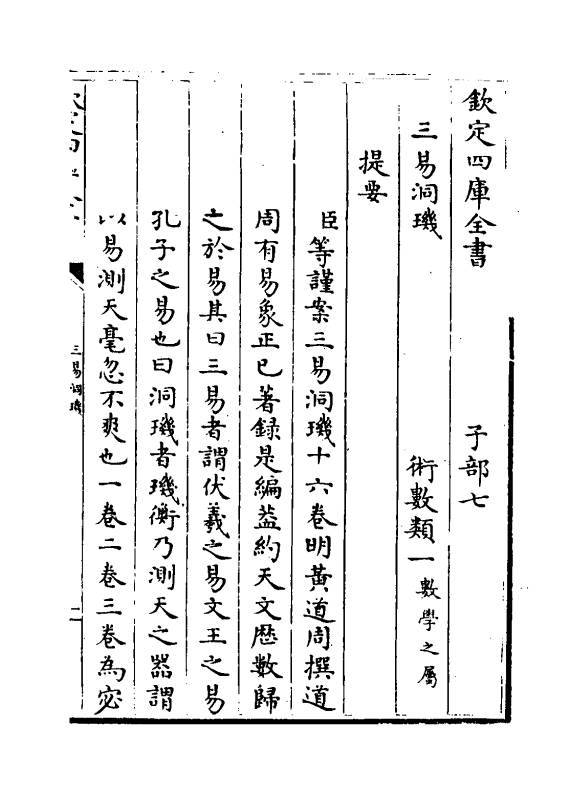 欽定四庫全書　子部七
三易洞璣　術數類一數學之屬
提要
臣等謹案三易洞璣十六卷明黃道周撰道
周有易象正已著録是編葢約天文厯數歸
之於易其曰三易者謂伏羲之易文王之易
孔子之易也曰洞璣者璣衡乃測天之器謂
以易測天毫忽不爽也一卷二卷三卷為宓
三易洞璣